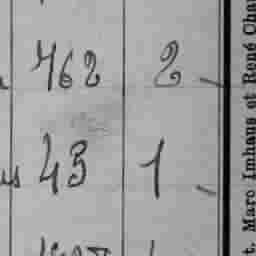 762 2
43 1
t. Marc Imhaus et René Cha